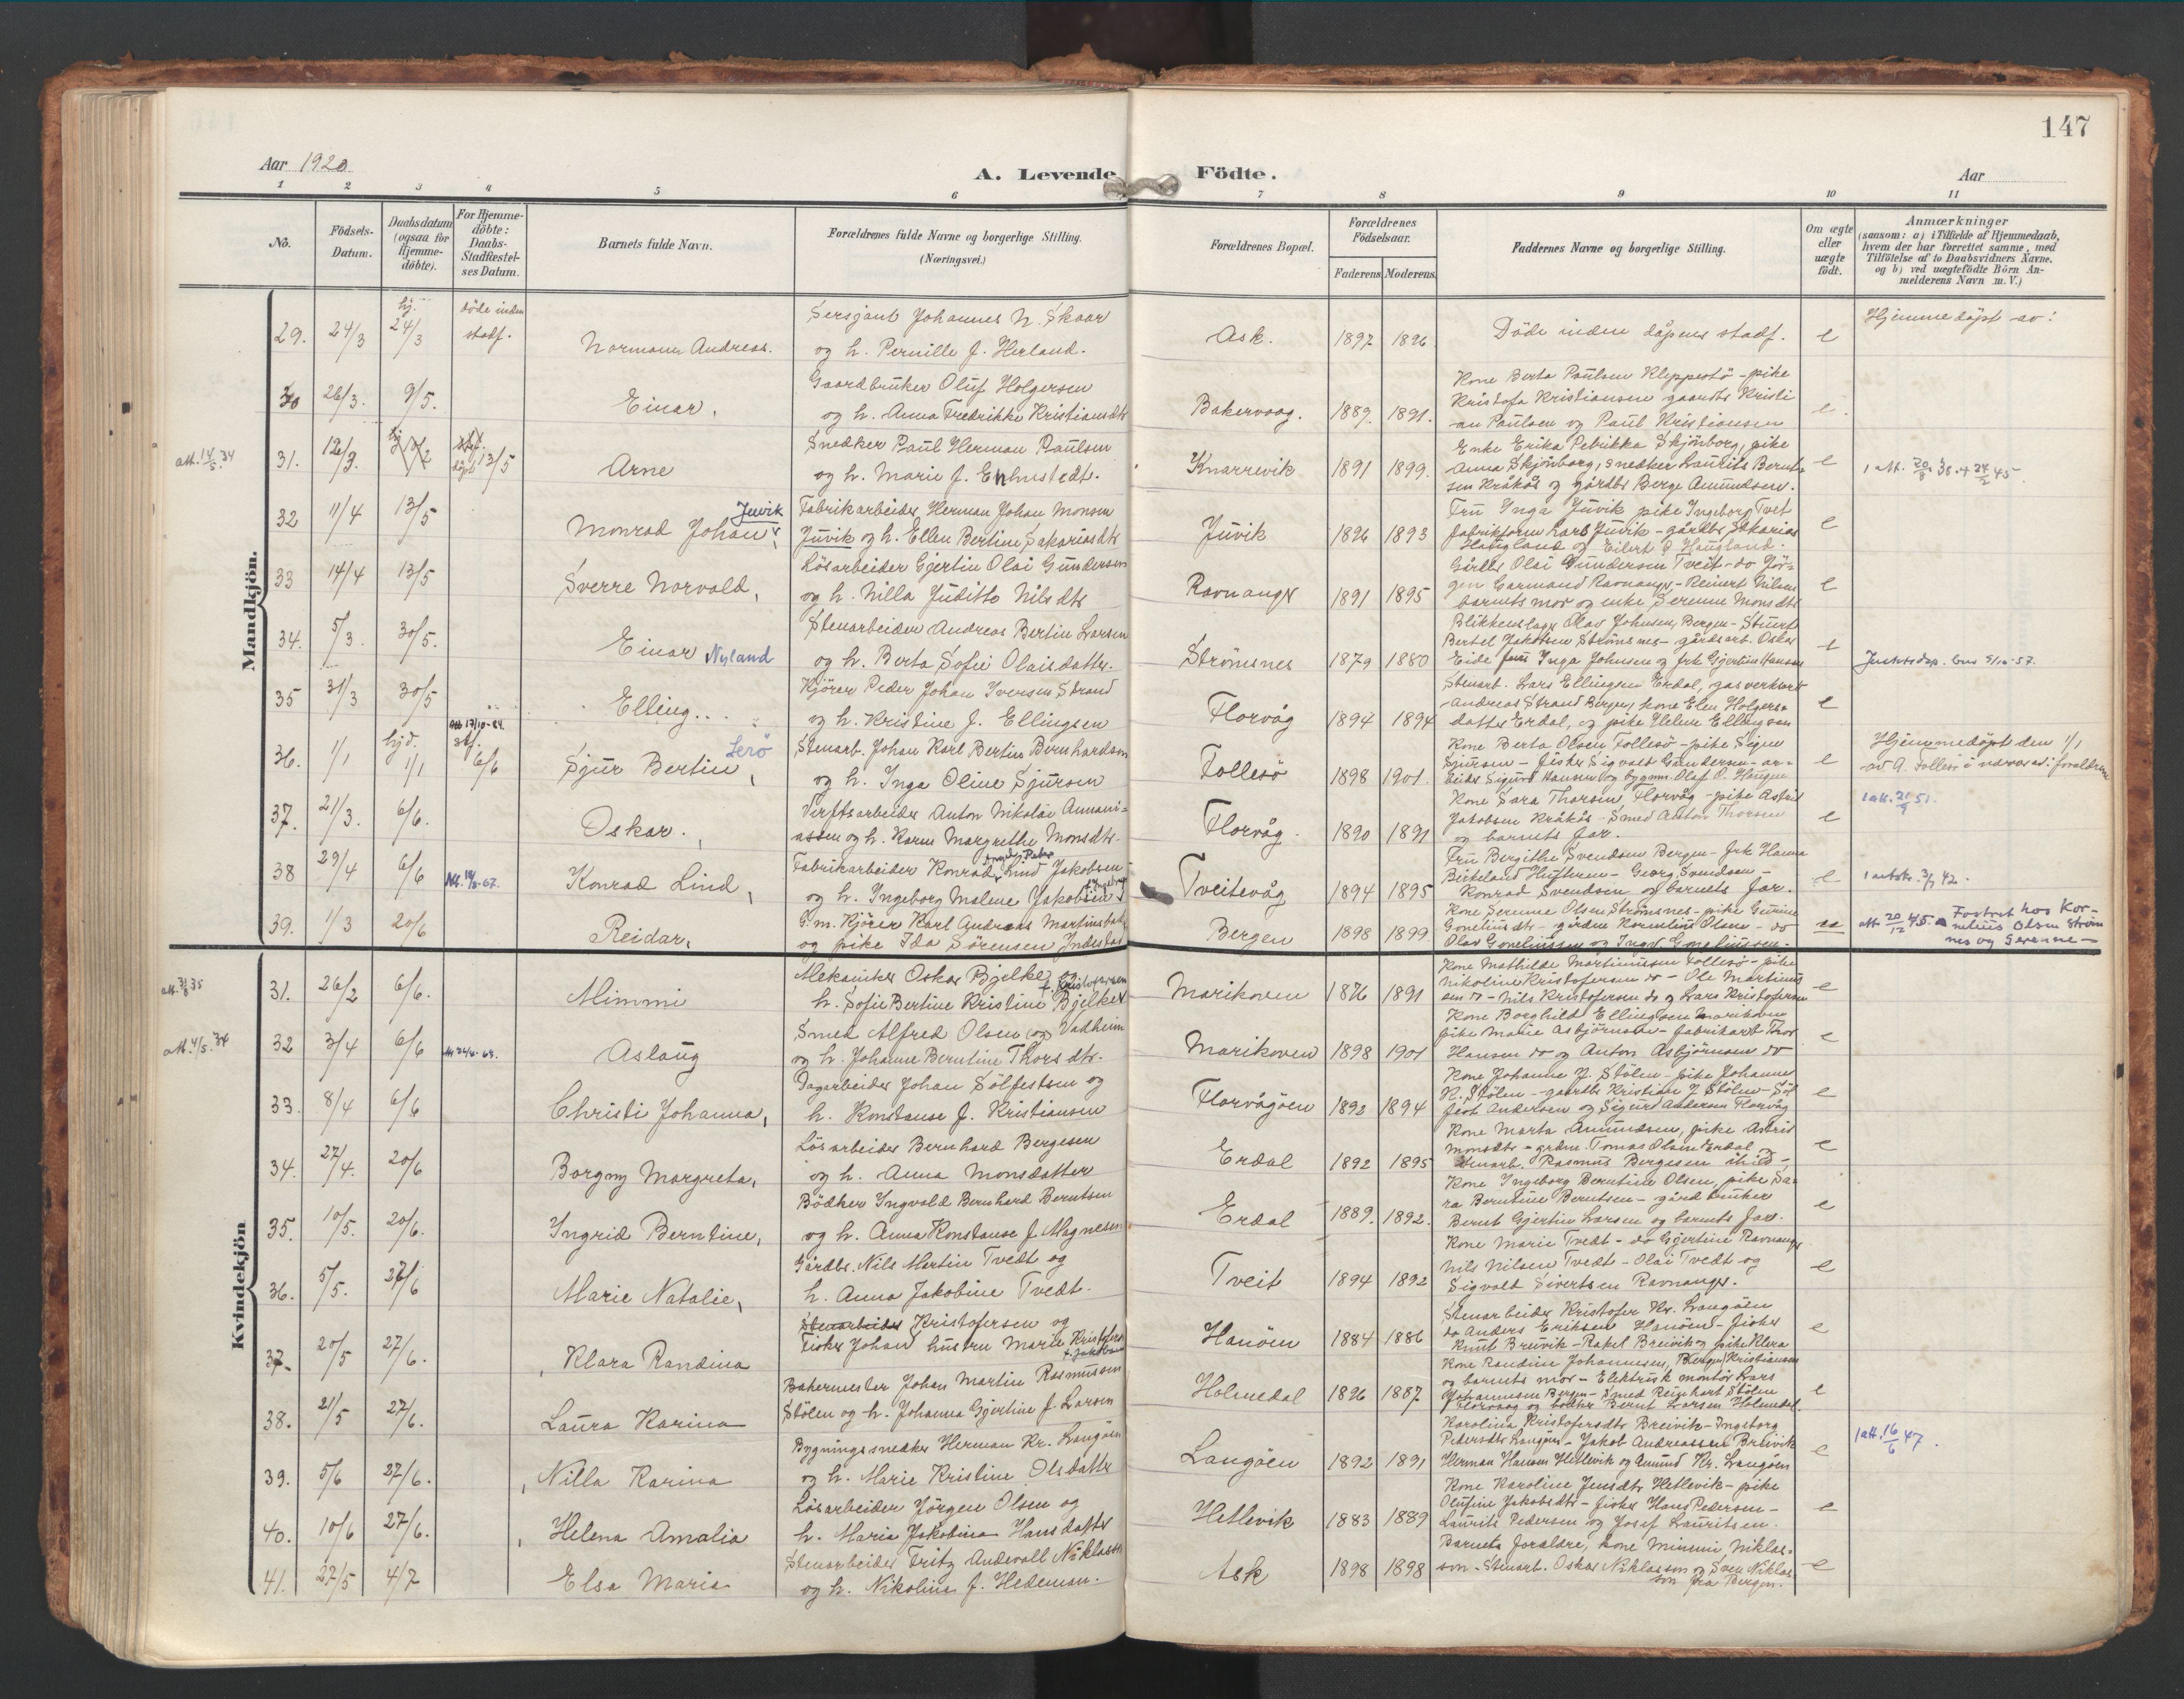 147
Aar 1920
A. Levende Födte.
Aar
1 2 3 4 5 6 7 8 9 10 11
No.
Födsels-Datum.
Daabsdatum (ogsaa for Hjemme-döbte).
For Hjemme-döbte: Daabs-Stadfæstel-ses Datum.
Barnets fulde Navn.
Forældrenes fulde Navne og borgerlige Stilling. (Næringsvei.)
Forældrenes Bopæl.
Forældrenes Födselsaar.
Faderens Moderens
Faddernes Navne og borgerlige Stilling.
Om ægte eller uægte födt.
Anmærkninger
(saasom: a) i Tilfælde af Hjemmedaab, hvem der har forrettet samme, med Tilföielse af to Daabsvidners Navne, og b) ved uægtefödte Börn An-melderens Navn m. V.)
Mandkjön.
29. 24/3 hj. 24/3 döde inden stadf. Normann Andreas.
Sersjant Johannes N. Skaar
og h. Pernille f. Herland.
Ask. 1897 1896 Döde inden dåpens stadf. e Hjemmedöpt av:
30 26/3. 9/5. Einar.
Gaardbruker Oluf Holgersen
og h. Anna Fredrikke Kristiansdtr
Bakervaag. 1889. 1891.
Kone Berta Paulsen Kleppestö - pike
Kristofa Kristiansen gaardbr Kristi
an Paulsen og Paul Kristiansen
e.
att. 14/5. 34
31. 12/3. 13/5 Arne
Snedker Paul Herman Paulsen
og h. Marie f. Enhustedt.
Knarrevik 1891 1899.
Enke Erika Petrikka Skjönborg, pike
Anna Skjönborg, snedker Laurits Bernt
sen Kråkås og gårdbr Berge Amundsen.
e
32 11/4 13/5 Monrad Johan Juvik
Fabrikarbeider Herman Johan Monsen
Juvik og h. Ellen Bertine Sakariasdtr
Juvik 1896 1893
Fru Inga Juvik pike Ingeborg Tvet
fabrikform Lars Juvik - gårdbr Sakarias
Haugland og Eilert P Haugland.
e
33 14/4 13/5 Sverre Norvald,
Lösarbeider Gjertin Olai Gundersen
og h. Nilla Juditte Nilsdtr
Ravnangr 1891 1895
Gårdbr Olai Gundersen Tveit - do Jör-
gen Garmand Ravnangr - Reinert Nilsen
barnets mor og enke Serenne Monsdtr
e
34. 5/3. 30/5. Einar Nyland
Stenarbeider Andreas Bertin Larsen
og h. Berta Sofie Olaisdatter.
Strömsnes 1879 1880
Blikkenslager Olav Johnsen, Bergen - Stuert
Bertel Jakobsen Strömsnes - gårdsarb. Oskar
Eide fru Inga Johnsen og frk Gjertine Hansen
e
35 31/3 30/5 Elling
Kjörer Peder Johan Iversen Strand
og h. Kristine f. Ellingsen
Florvåg 1894 1894
Stenarb. Lars Ellingsen Erdal, gasverkarb
Andreas Strand Bergen, kone Elen Holgers
datter Erdal, og pike Helene Ellingsen
e
36. 1/1 hjd. 1/1 stf. 6/6 Sjur Bertin, Lerö
Stenarb. Johan Karl Bertin Bernhardsen
og h. Inga Oline Sjursen
Follesö 1898 1901.
Kone Berta Olsen Follesö - pike Signe
Sjursen - fisker Sigvalt Gundersen - ar-
beider Sigurd Hansen og bygnm. Olaf O. Haugen
e
Hjemmedöpt den 1/1
av A. Follesö i nærvær av foreldrene
37. 21/3. 6/6. Oskar.
Verftsarbeider Anton Nikolai Annani-
assen og h. Karen Margrethe Monsdtr.
Florvåg. 1890 1891
Kone Sara Thorsen, Florvåg - pike Astrid
Jakobsen Kråkås - Smed Anton Thorsen
og barnets far.
e
38 29/4 6/6 Konrad Lind,
Fabrikarbeider Konrad Lind Jakobsen
og h. Ingeborg Malene Jakobsen
Tveitevåg 1894 1895
Fru Bergithe Svendsen Bergen - frk Hanna
Birkeland Hufthren - Georg Svendsen -
Konrad Svendsen og barnets far.
e 1 attstr. 3/7 42.
39. 1/3 20/6 Reidar.
G.m. Kjörer Karl Andreas Martinsbak
og pike Ida Sörensen Indestad
Bergen 1898 1899
Kone Serenne Olsen Strömsnes - pike Gurine
Goneliusdtr - gårdm Kornelius Olsen - do
Olav Goneliussen og Ingv. Goneliussen.
ue
att. 20/12 45. Fostret hos Kor-
nelius Olsen Ström
nes og Serenne -
Kvindekjön
31. 26/2 6/6. Mimmi
Mekaniker Oskar Bjelke f. Kristofersen
h. Sofie Bertine Kristine Bjelke
Marikoven 1896 1891
Kone Mathilde Martinussen Follesö - pike
Nikoline Kristofersen do - Ole Martinus
sen do - Nils Kristofersen do og Lars Kristofersen
e
att. 4/5. 34
32 3/4 6/6 Aslaug
Smed Alfred Olsen Vadheim
og h. Johanne Berntine Thorsdtr.
Marikoven 1898 1901
Kone Borghild Ellingsen Marikoven
pike Marie Asbjörnsen - fabrikarb Thor
Hansen do og Anton Asbjörnsen do
e
33. 8/4 6/6 Christi Johanna,
Dagarbeider Johan Sölfestsen og
h. Konstanse f. Kristiansen
Florvågöen 1892 1894
Kone Johanne J. Stölen - pike Johanne
K. Stölen - gaardb Kristian J Stölen - Söl
fest Andersen og Sigurd Andersen Florvåg
e
34. 27/4. 20/6 Borgny Margreta,
Lösarbeider Bernhard Bergesen
og h. Anna Monsdatter
Erdal 1892 1895
Kone Marta Amundsen, pike Astrid
Monsdtr - grdm. Tomas Olsen Erdal og
stenarb. Rasmus Bergesen
e
35. 10/5. 20/6. Ingrid Berntine,
Bödker Ingvald Bernhard Berntsen
og h. Anna Konstanse f. Magnesen
Erdal 1889. 1892.
Kone Ingeborg Berntine Olsen, pike Sa-
ra Berntine Berntsen - gårdbruker
Bernt Gjertin Larsen og barnets far.
e
36. 5/5. 27/6 Marie Natalie,
Gårdbr. Nils Martin Tvedt og
h. Anna Jakobine Tvedt.
Tveit 1894 1892
Kone Marie Tvedt - do Gjertine Ravnangr
Nils Nilsen Tvedt - Olai Tvedt og
Sigvald Sivertsen Ravnangr.
e
37. 20/5 27/6. Klara Randina
Stenarbeider Kristofersen og
Fisker Johan hustru Marie Kristofers
Hanöen 1884 1886
Stenarbeider Kristofer Kr. Langöen
do Anders Eriksen Hanöen - fisker
Knut Breivik - Rakel Breivik og pike Klara
e
38. 21/5 27/6. Laura Karina
Bakermester Johan Martin Rasmussen
Stölen og h. Johanna Gjertine f. Larsen
Holmedal 1896 1887
Kone Randine Johannesen, Bergen, Kristiansen
og barnets mor - Elektrisk montör Lars
Johannesen Bergen - Smed Reinhart Stölen
Florvaag og bödker Bernt Larsen Holmedal
e
39. 5/6 27/6. Nilla Karina
Bygningssnedker Herman Kr. Langöen
og h. Marie Kristine Olsdatter
Langöen 1892 1891
Karolina Kristofersdtr Breivik - Ingeborg
Pedersdtr Langöen - Jakob Andreassen Breivik
Herman Hansen Hetlevik og Amund Kr. Langöen
e 1 att. 16/6 47.
40. 10/6 27/6. Helena Amalia
Lösarbeider Jörgen Olsen og
h. Maria Jakobina Hansdatter
Hetlevik 1883 1889
Kone Karoline Jensdtr Hetlevik - pike
Olufine Jakobsdtr - fisker Hans Pedersen -
Laurits Pedersen og Josef Lauritsen.
e
41. 27/5 4/7 Elsa Maria
Stenarbeider Fritz Andevall Niklasson
og h. Nikolina f. Hedeman.
Ask 1898 1898
Barnets foreldre, kone Mimmi Niklas-
son - Stenarb. Oskar Niklasson og Sven Niklas
son fra Bergen.
e